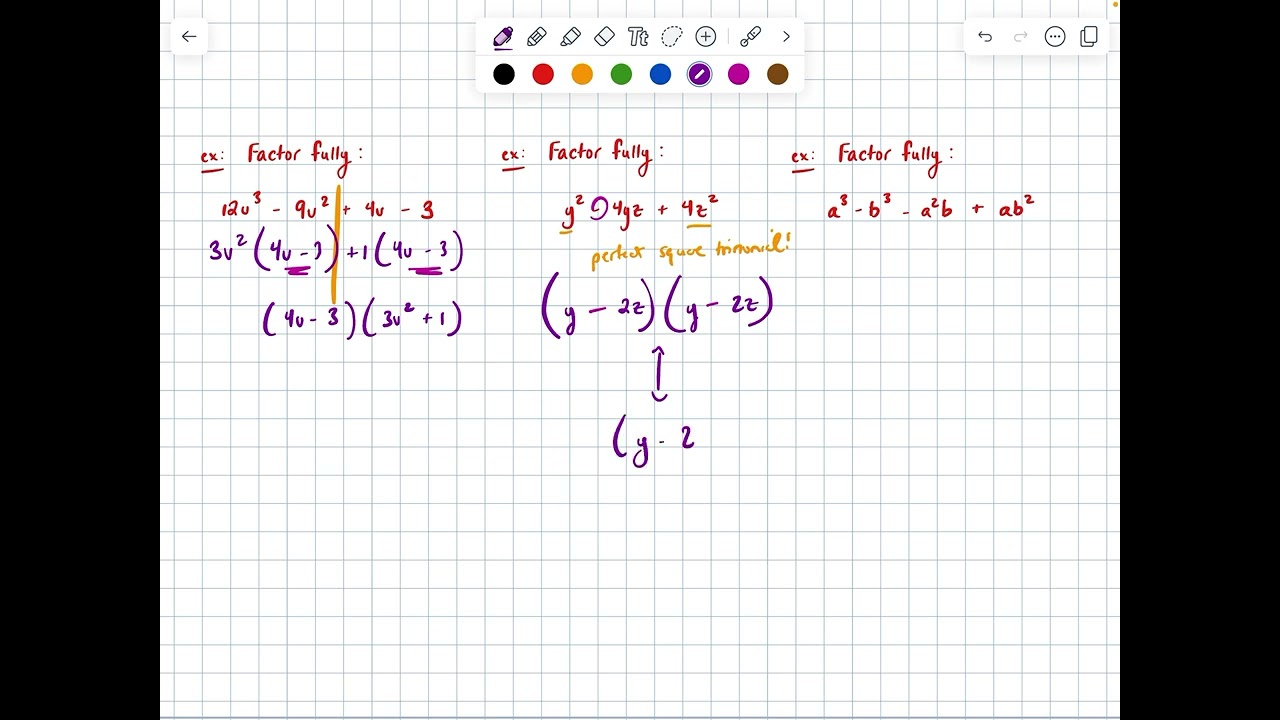 Tt
ex: Factor fully:
12v³ - 9v² + 4v - 3
3v²(4v - 3) + 1(4v - 3)
(4v - 3)(3v² + 1)
ex: Factor fully:
y² - 4yz + 4z²
perfect square trinomial!
(y - 2z)(y - 2z)
(y - 2
ex: Factor fully:
a³ - b³ - a²b + ab²